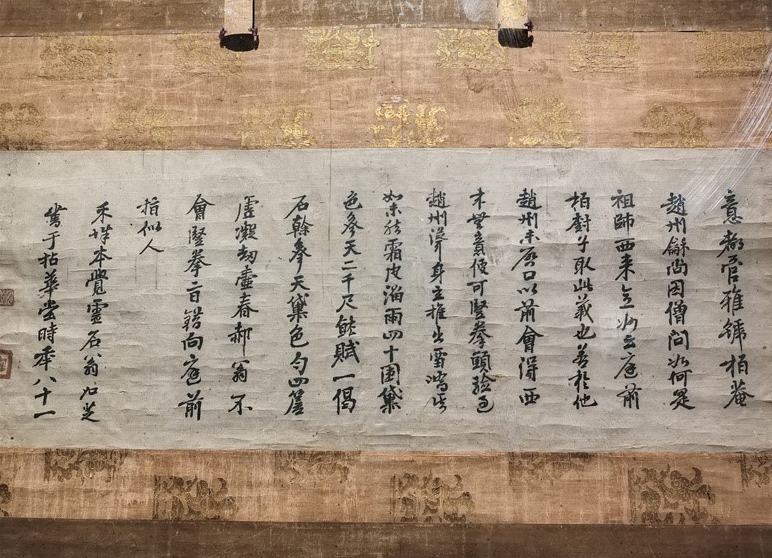 意都管雅號柏菴
趙州和尚因僧問如何是
祖師西來意州云庭前
柏樹子取此義也若於他
趙州未啓口以前會得西
來無意便可豎拳頭
趙州渾身立
霜皮溜雨四十圍黛
色參天二千尺能賦一偈
石幹參天黛色勻四簷
虛凝劫壺春郝翁不
會豎拳旨錯向庭前
指似人
禾城本覺靈石翁如芝
于拈華堂時年八十一